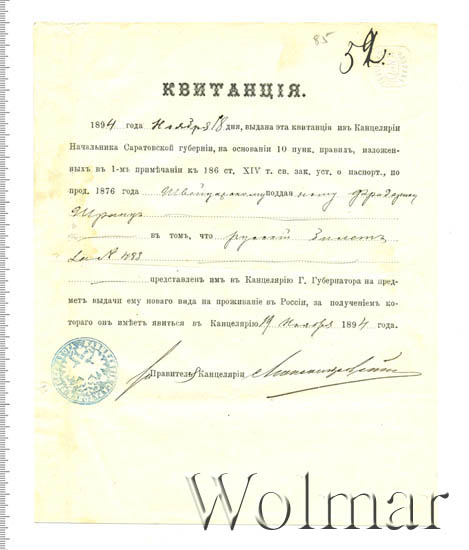 85
52.
КВИТАНЦІЯ.
1894 года Ноября 18 дня, выдана эта квитанція изъ Канцеляріи
Начальника Саратовской губерніи, на основаніи 10 пунк. правилъ, изложен-
ныхъ въ 1-мъ примѣчаніи къ 186 ст. XIV т. св. зак. уст. о паспорт., по
прод. 1876 года Швейцарскому поддан ному Фридриху
въ томъ, что русскій билетъ
за № 483
представленъ имъ въ Канцелярію Г. Губернатора на пред-
метъ выдачи ему новаго вида на проживаніе въ Россіи, за полученіемъ ко-
тораго онъ имѣетъ явиться въ Канцелярію 19 Ноября 1894 года.
Правитель Канцеляріи
Wolmar